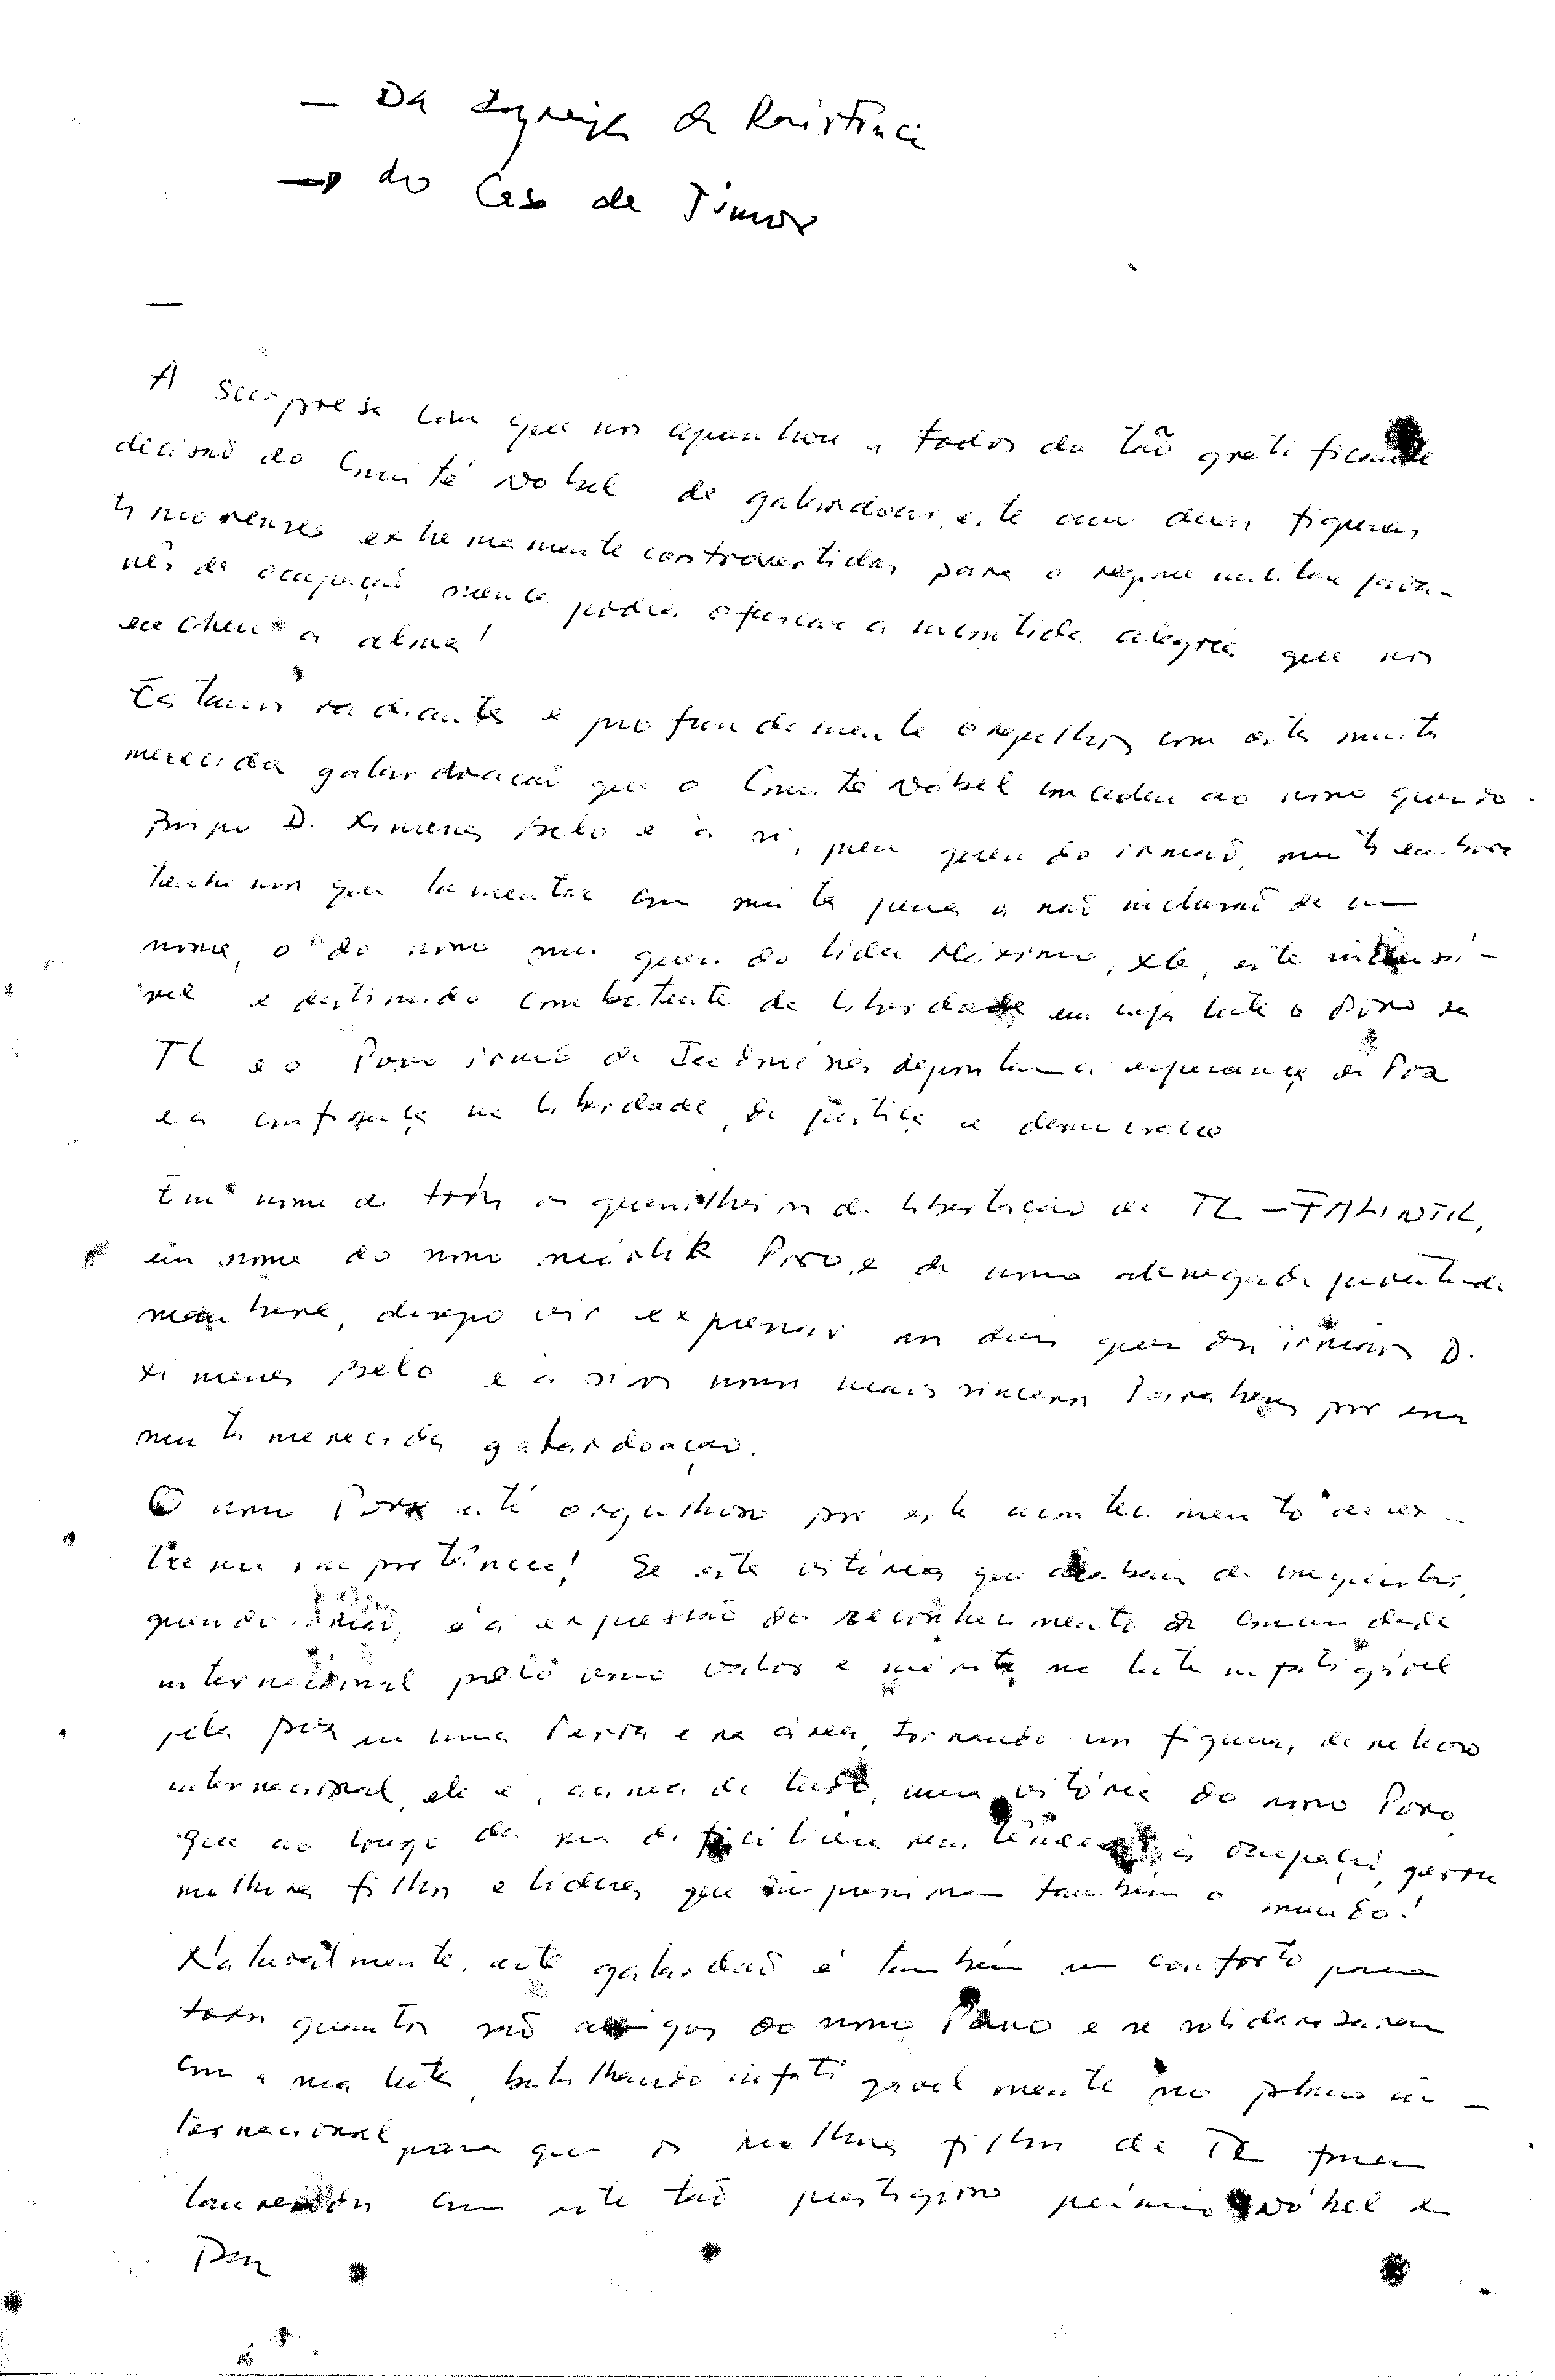 — Da Igreja da Resistência
→ do Caso de Timor
A surpresa com que nos apanhou a todos da tão gratificante
decisão do Comité Nobel de galardoar este ano duas figuras
timorenses extremamente controvertidas para o regime militar java-
nês de ocupação nunca podia ofuscar a incontida alegria que nos
encheu a alma!
Estamos radiantes e profundamente orgulhosos com esta muito
merecida galardoação que o Comité Nóbel concedeu ao nosso querido
Bispo D. Ximenes Belo e a si, meu querido irmão, muito embora
tenhamos que lamentar com muita pena a não inclusão de um
nome, o do nosso mui querido líder Máximo, Xte, este
e destemido combatente da liberdade em cuja luta o Povo de
TL e o Povo irmão da Indonésia depositam a esperança da Paz
e a confiança na liberdade, da justiça e democracia
Em nome de todos os guerrilheiros da libertação de TL — FALINTIL,
em nome do nosso maubere Povo, e da nossa abnegada juventude
maubere, desejo vir expressar aos dois queridos irmãos D.
Ximenes Belo e a si os nossos mais sinceros Parabens por essa
muito merecida galardoação.
O nosso Povo está orgulhoso por este acontecimento de ex-
trema importância! Se esta vitória que acabais de conquistar,
querido irmão, é a expressão do reconhecimento da comunidade
internacional pelo vosso valor e mérito na luta infatigável
pela paz na nossa Terra e na área, tornando-vos figuras de relevo
internacional, ela é, acima de tudo, uma vitória do nosso Povo
que ao longo da sua dificílima resistência à ocupação, gerou
melhores filhos e líderes que impressionam também o mundo!
Naturalmente, este galardão é também um conforto para
todos quantos são amigos do nosso Povo e se solidarizaram
com a sua luta, batalhando infatigavelmente no plano in-
ternacional para que os melhores filhos de TL fossem
laureados com este tão prestigioso prémio Nóbel da
Paz